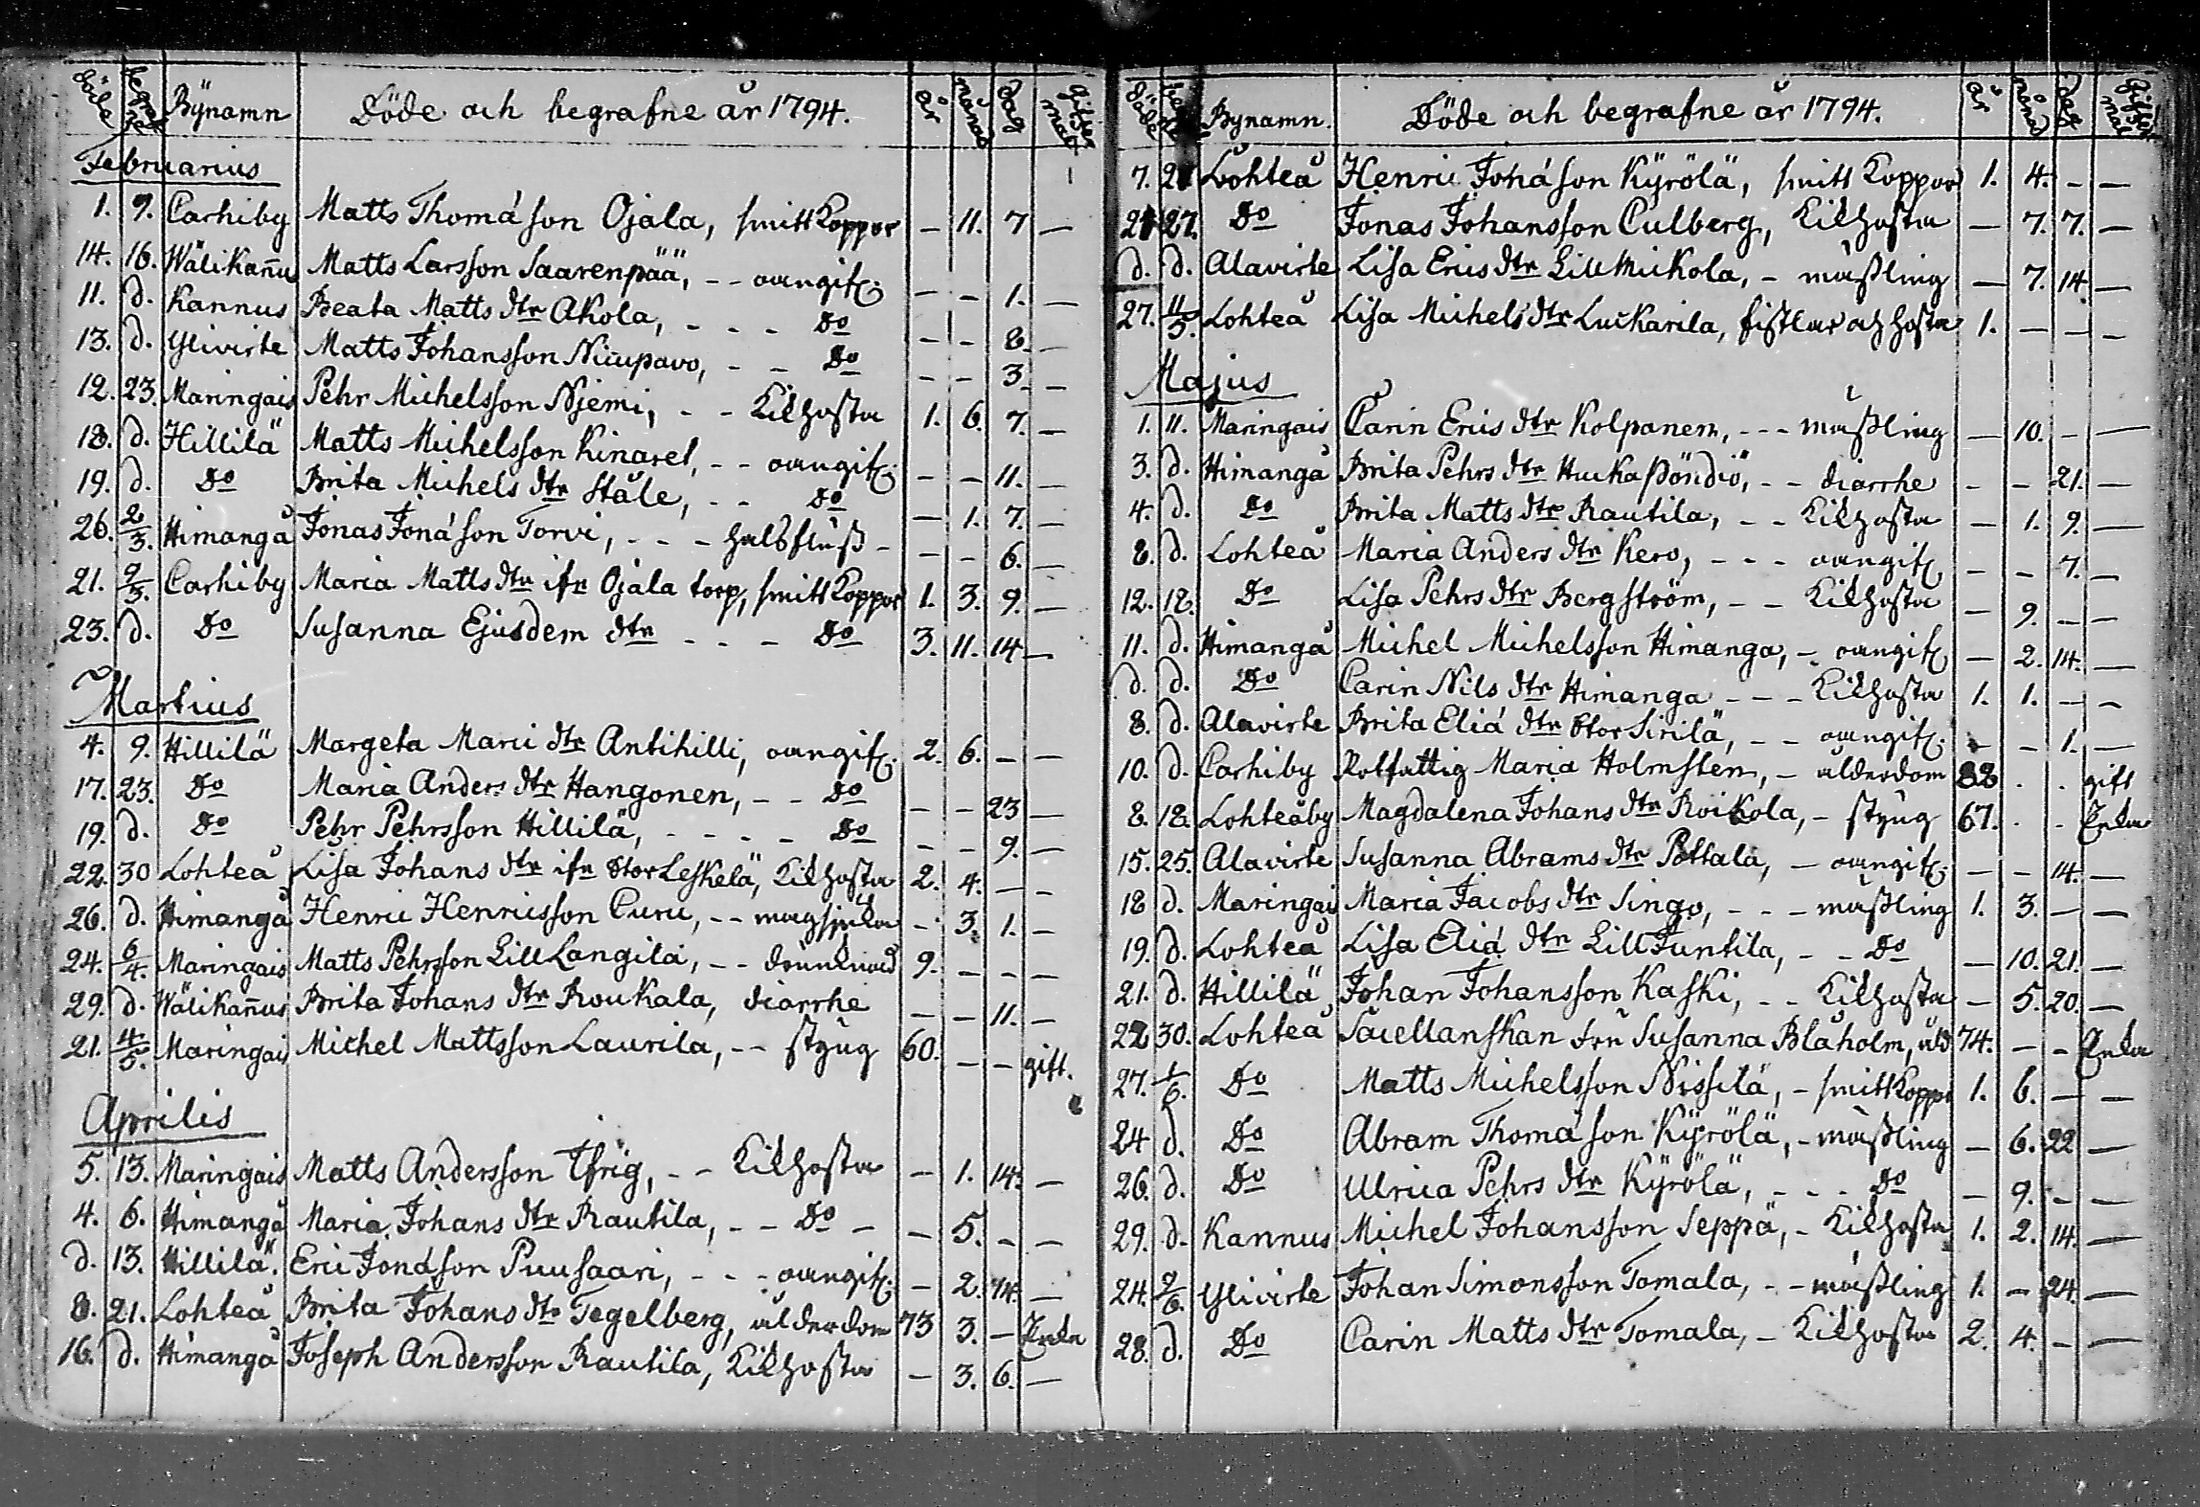 döde begrafne Bÿnamn Döde och begrafne år 1794. år månad dag Giftermål
Februarius
1. 9. Carhiby Matts Thomæson Ojala, smittkoppor — 11. 7 —
14. 16. Wälikañus Matts Larsson Saarenpää, -- oangifv. — - 1. —
11. d. Kannus Beata Matts dtr Akola, - - - Do - - 8. —
13. d. Ylivirte Matts Johansson Nicupavo, - - Do - - 3. —
12. 23. Maringais Pehr Michelsson Njemi, - - Kikhosta 1. 6. 7. —
18. d. Hillilä Matts Michelsson Kinaret, -- oangifv. — — 11. —
19. d. Do Brita Michels dtr Ståle, - - Do — 1. 7. —
26. 2/3. Himangå Jonas Jonæson Torvi, - - - halsfluss - - - 6. —
21. 9/3. Carhiby Maria Matts dtr ifr Ojala torp, smittkoppor 1. 3. 9. —
23. d. Do Susanna Ejusdem dtr - - - Do 3. 11. 14 —
Martius
4. 9. Hillilä Margeta Marci dtr Antihilli, oangifv. 2. 6. — —
17. 23. Do Maria Anders dtr Hangonen, - - Do - - 23 —
19. d. Do Pehr Pehrsson Hillilä, - - - - Do - - 9. —
22. 30 Lohteå Lisa Johans dtr ifr Stor Leskelä, Kikhosta 2. 4. — -
26. d. Himangå Henric Henricsson Curu, -- magsjuka - 3. 1. -
24. 6/4. Maringais Matts Pehrsson Lill Langila, -- drunknad 9. - - -
29. d. Wälikañus Brita Johans dtr Roukala, diarrhe — — 11. —
21. 4/5. Maringais Michel Mattsson Laurila, -- styng 60. — — gift.
Aprilis
5. 13. Maringais Matts Andersson Yfrig, - - Kikhosta — 1. 14. —
4. 6. Himangå Maria Johans dtr Rautila, - - Do - — 5. - —
d. 13. Hillilä. Eric Jonæson Puusaari, - - - oangifv. — 2. 14. —
8. 21. Lohteå Brita Johans dtr Tegelberg, ålderdom 73 3. — Enka
16. d. Himangå Joseph Andersson Rautila, Kikhosta — 3. 6. —
döde Bynamn. Döde och begrafne år 1794. år månad dag Giftermål
7. 21 Lohteå Henric Johæson Kÿrölä, smittkoppor 1. 4. - —
21 27. Do Jonas Johansson Culberg, Kikhosta — 7. 7. —
d. d. Alavirte Lisa Erics dtr Lill Mickola, - mäßling — 7. 14. —
27. 11/5. Lohteå Lisa Michels dtr Luckarila, fistlar och hosta 1. — — —
Majus
1. 11. Maringais Carin Erics dtr Kolpanen, --- mäßling — 10. - —
3. d. Himangå Brita Pehrs dtr Huckapöndiö, - - diarrhe - - 21. —
4. d. Do Brita Matts dtr Rautila, - - Kikhosta — 1. 9. —
8. d. Lohteå Maria Anders dtr Kero, - - - oangifv — - 7. —
12. 18. Do Lisa Pehrs dtr Bergström, - - Kikhosta — 9. — -
11. d. Himangå Michel Michelsson Himanga, - oangifv — 2. 14. —
d. d. Do Carin Nils dtr Himanga - - - Kikhosta 1. 1. — -
8. d. Alavirte Brita Eliæ dtr Stor Sirilä, - - oangifv. - - 1. —
10. d. Carhiby Rotfattig Maria Holmsten, - ålderdom 82 . . gift
8. 18. Lohteåby Magdalena Johans dtr Roikola, - styng 67. . . Enka
15. 25. Alavirte Susanna Abrams dtr Pottala, - oangifv. — — 14. —
18 d. Maringais Maria Jacobs dtr Singo, - - - mäßling 1. 3. — —
19. d. Lohteå Lisa Eliæ dtr Lill Juntila, - - Do — 10. 21. —
21. d. Hillilä Johan Johansson Kaski, - - Kikhosta — 5. 20. —
22 30. Lohteå Susanna Blåholm, åld 74. — — Enka
27. 1/6. Do Matts Michelsson Nissilä, - smittkoppor 1. 6. — —
24 d. Do Abram Thomæson Kÿrölä, - mäßling — 6. 22 —
26. d. Do Ulrica Pehrs dtr Kÿrölä, - - - Do — 9. - —
29. d. Kannus Michel Johansson Seppä, - Kikhosta 1. 2. 14. —
24. 9/6. Ylivirte Johan Simonsson Tomala, - - mäßling 1. — 24. —
28. d. Do Carin Matts dtr Tomala, - Kikhosta 2. 4. - —